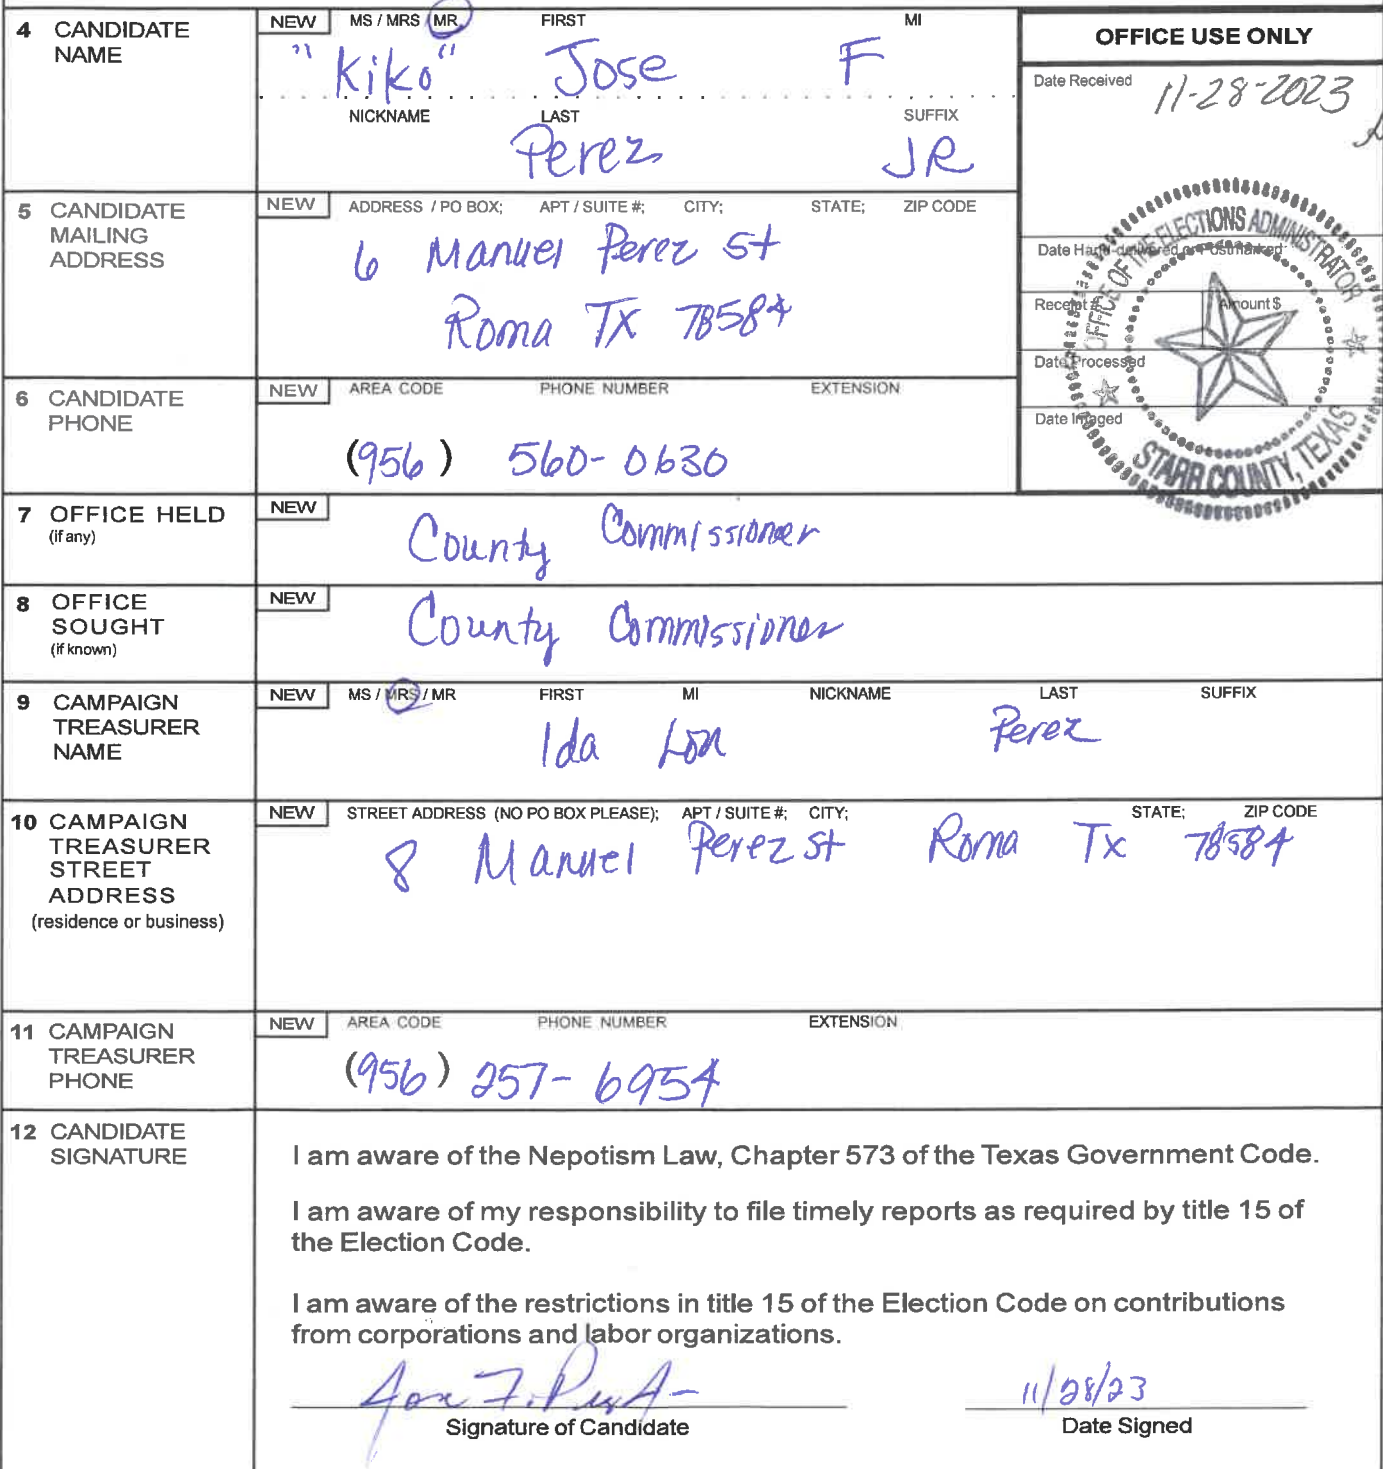 4 CANDIDATE NAME
NEW MS / MRS / MR FIRST MI
"Kiko" Jose F
NICKNAME LAST SUFFIX
Perez JR
OFFICE USE ONLY
Date Received 11-28-2023
Date Hand-delivered or Postmarked
Receipt # Amount $
Date Processed
Date Imaged
OFFICE OF THE ELECTIONS ADMINISTRATOR
STARR COUNTY, TEXAS
5 CANDIDATE MAILING ADDRESS
NEW ADDRESS / PO BOX; APT / SUITE #; CITY; STATE; ZIP CODE
6 Manuel Perez St
Roma TX 78584
6 CANDIDATE PHONE
NEW AREA CODE PHONE NUMBER EXTENSION
(956) 560-0630
7 OFFICE HELD
(if any)
NEW
County Commissioner
8 OFFICE SOUGHT
(if known)
NEW
County Commissioner
9 CAMPAIGN TREASURER NAME
NEW MS / MRS / MR FIRST MI NICKNAME LAST SUFFIX
Ida Lou Perez
10 CAMPAIGN TREASURER STREET ADDRESS
(residence or business)
NEW STREET ADDRESS (NO PO BOX PLEASE); APT / SUITE #; CITY; STATE; ZIP CODE
8 Manuel Perez St Roma Tx 78584
11 CAMPAIGN TREASURER PHONE
NEW AREA CODE PHONE NUMBER EXTENSION
(956) 257-6954
12 CANDIDATE SIGNATURE
I am aware of the Nepotism Law, Chapter 573 of the Texas Government Code.
I am aware of my responsibility to file timely reports as required by title 15 of
the Election Code.
I am aware of the restrictions in title 15 of the Election Code on contributions
from corporations and labor organizations.
11/28/23
Signature of Candidate Date Signed